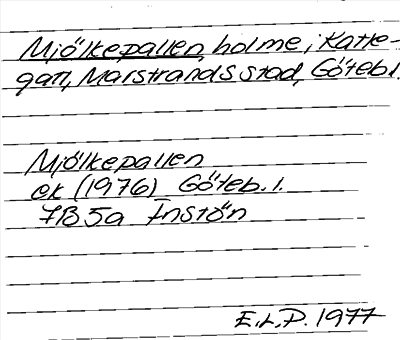 Mjölkepallen, holme, i Katte-
gatt, Marstrands stad, Göteb. l.
Mjölkepallen
ek (1976) Göteb. l.
7B 5a Instön
E.L.P. 1977